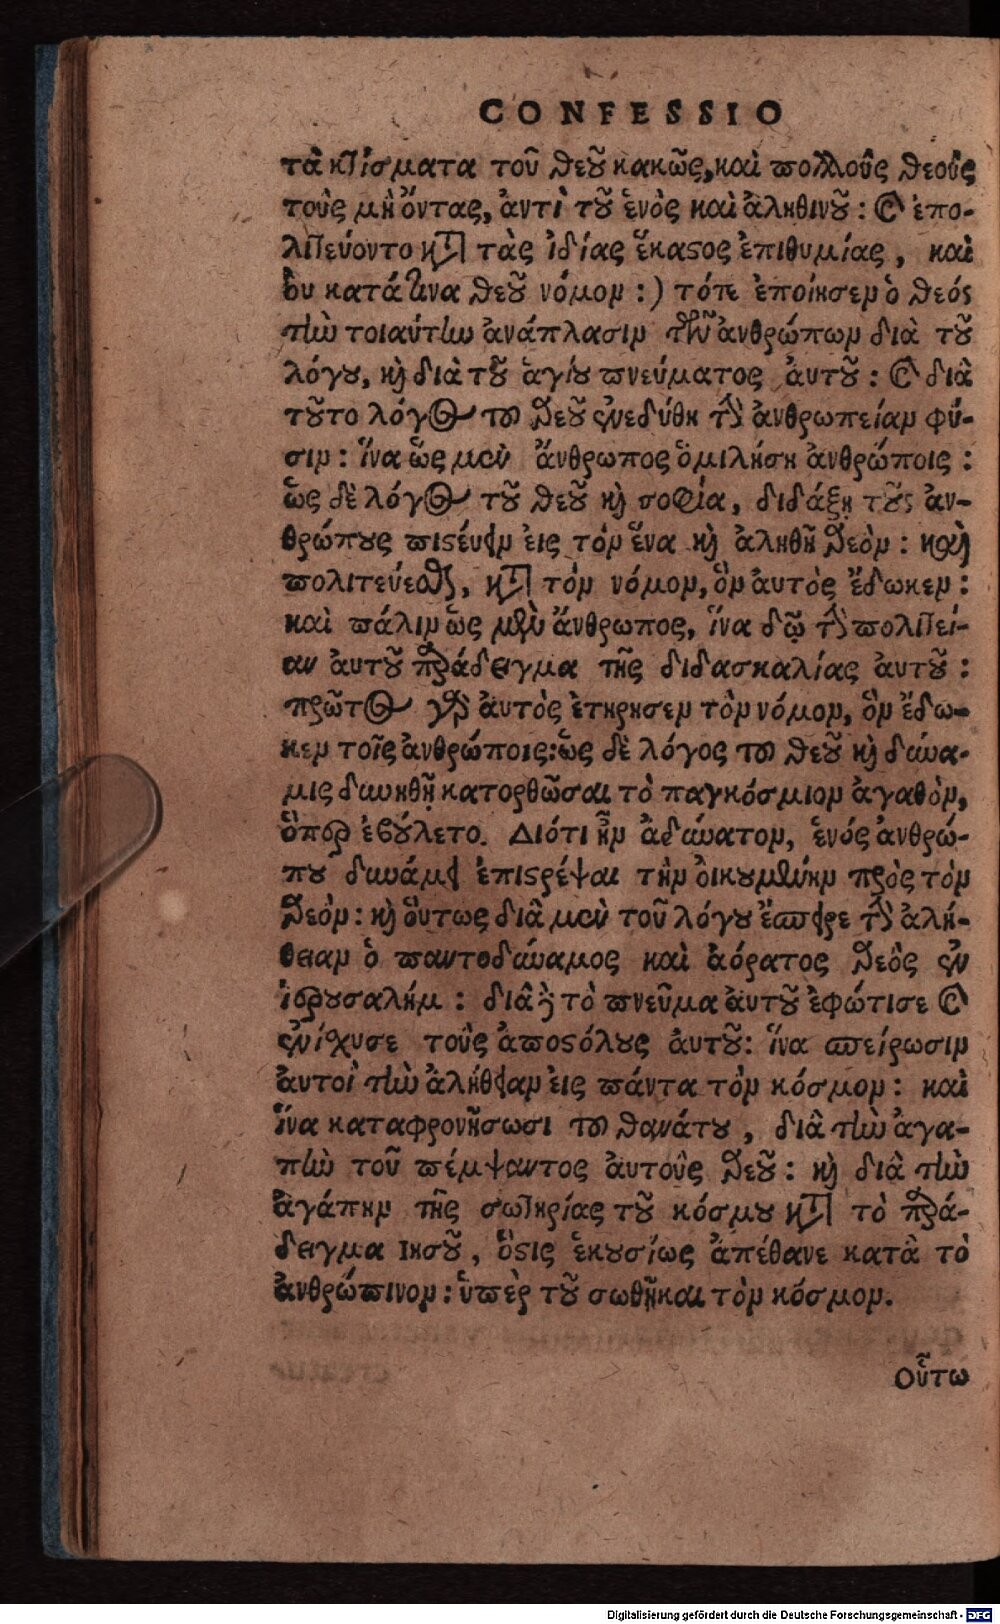 CONFESSIO
τὰ κτίσματα τοῦ θεοῦ κακῶς, καὶ πολλοὺς θεοὺς
τοὺς μὴ ὄντας, ἀντὶ τοῦ ἑνὸς καὶ ἀληθινοῦ: καὶ ἐπο-
λιτεύοντο κατὰ τὰς ἰδίας ἕκαστος ἐπιθυμίας, καὶ
ὀυ κατά τινα θεοῦ νόμον:) τότε ἐποίησεν ὁ θεός
τὴν τοιαύτην ἀνάπλασιν τῶν ἀνθρώπων διὰ τοῦ
λόγου, καὶ διὰ τοῦ ἁγίου πνεύματος ἀυτοῦ: καὶ διὰ
τοῦτο λόγος τοῦ θεοῦ ἐνεδύθη τὴν ἀνθρωπείαν φύ-
σιν: ἵνα ὡς μὲν ἄνθρωπος ὁμιλήσῃ ἀνθρώποις:
ὡς δὲ λόγος τοῦ θεοῦ καὶ σοφία, διδάξῃ τοὺς ἀν-
θρώπους πιστέυειν ἐις τόν ἕνα καὶ ἀληθῆ θεὸν: καὶ
πολιτεύεσθαι, κατὰ τόν νόμον, ὃν ἀυτὸς ἔδωκεν:
καὶ πάλιν ὡς μὲν ἄνθρωπος, ἵνα δῷ τὴν πολιτεί-
αν ἀυτοῦ παράδειγμα τῆς διδασκαλίας ἀυτοῦ:
πρῶτος γὰρ ἀυτὸς ἐτήρησεν τὸν νόμον, ὃν ἔδω-
κεν τοῖς ἀνθρώποις: ὡς δὲ λόγος τοῦ θεοῦ καὶ δύνα-
μις δυνηθῇ κατορθῶσαι τὸ παγκόσμιον ἀγαθὸν,
ὅπερ ἐβούλετο. Διότι ἦν ἀδύνατον, ἑνός ἀνθρώ-
που δυνάμει ἐπιστρέψαι τὴν ὀικουμένην πρὸς τὸν
θεὸν: καὶ ὅυτως διὰ μὲν τοῦ λόγου ἔσπειρε τὴν ἀλή-
θειαν ὁ παντοδύναμος καὶ ἀόρατος θεὸς ἐν
ἱερουσαλήμ: διὰ δὲ τὸ πνεῦμα ἀυτοῦ ἐφώτισε καὶ
ἐνίσχυσε τοὺς ἀποστόλους ἀυτοῦ: ἵνα σπείρωσιν
ἀυτοὶ τὴν ἀλήθειαν ἐις πάντα τὸν κόσμον: καὶ
ἵνα καταφρονήσωσι τοῦ θανάτου, διὰ τὴν ἀγά-
πην τοῦ πέμψαντος ἀυτοὺς θεοῦ: καὶ διὰ τὴν
ἀγάπην τῆς σωτηρίας τοῦ κόσμου κατὰ τὸ παρά-
δειγμα ιησοῦ, ὅστις ἑκουσίως ἀπέθανε κατὰ τὸ
ἀνθρώπινον: ὑπὲρ τοῦ σωθῆναι τὸν κόσμον.
Οὕτω
Digitalisierung gefördert durch die Deutsche Forschungsgemeinschaft - DFG